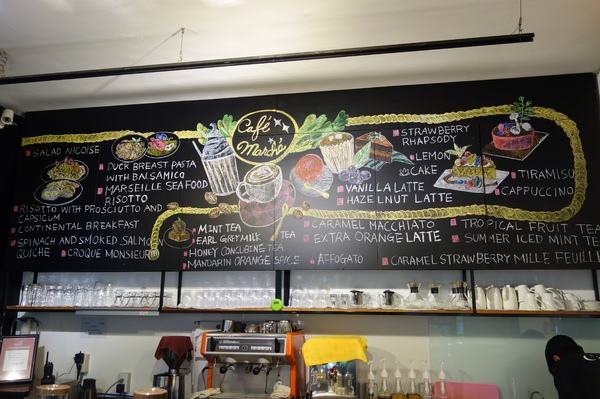 Café
Marché
SALAD NICOISE
DUCK BREAST PASTA
WITH BALSAMICO
MARSEILLE SEAFOOD
RISOTTO
RISOTTO WITH PROSCIUTTO AND
CAPSICUM
CONTINENTAL BREAKFAST
SPINACH AND SMOKED SALMON
QUICHE
CROQUE MONSIEUR
MINT TEA
EARL GREY MILK TEA
HONEY CONCUBINE TEA
MANDARIN ORANGE SPICE
VANILLA LATTE
HAZELNUT LATTE
CARAMEL MACCHIATO
EXTRA ORANGE LATTE
AFFOGATO
STRAWBERRY
RHAPSODY
LEMON
CAKE
TIRAMISU
CAPPUCCINO
TROPICAL FRUIT TEA
SUMMER ICED MINT TE
CARAMEL STRAWBERRY MILLE FEUILL